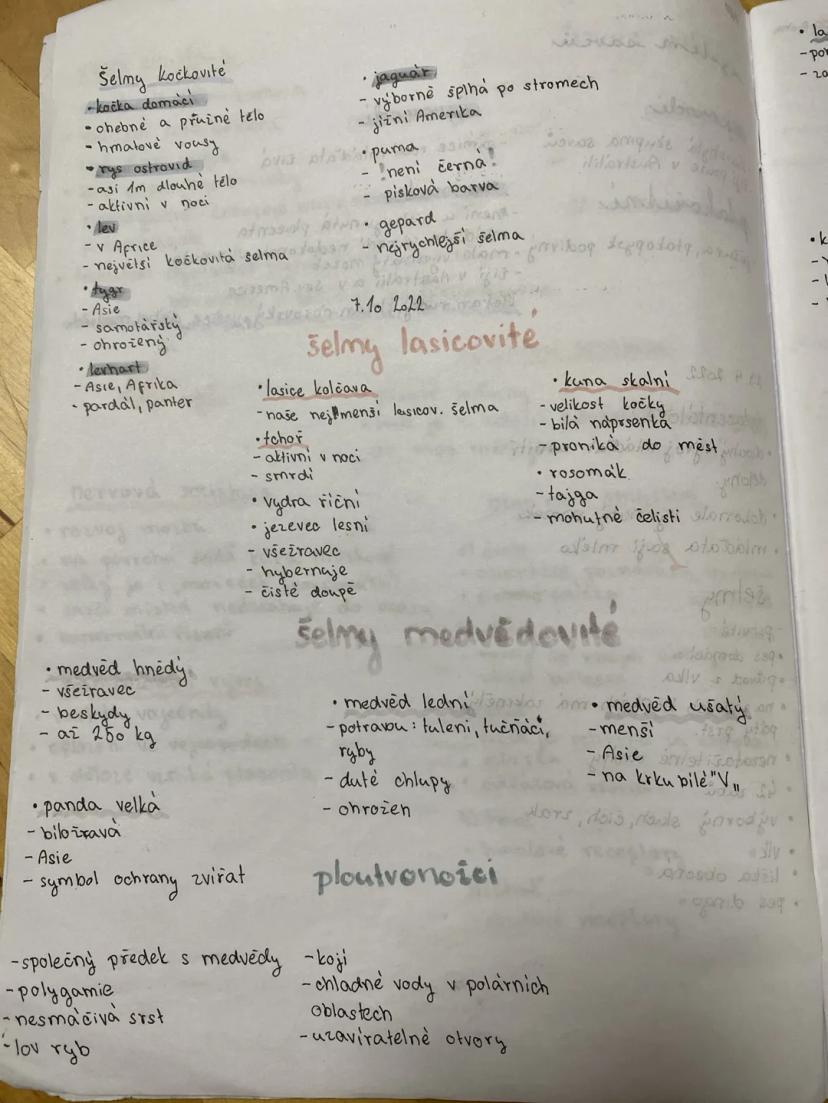 Šelmy kočkovité
• kočka domácí
• ohebné a pružné tělo
- hmatové vousy
• rys ostrovid
- asi 1m dlouhé tělo
- aktivní v noci
• lev
- v Africe
- největší kočkovitá šelma
• tygr
- Asie
- samotářský
- ohrožený
• levhart
- Asie, Afrika
- pardál, panter
• jaguár
- výborně šplhá po stromech
- jižní Amerika
• puma
- !není černá!
- písková barva
• gepard
- nejrychlejší šelma
7.10 2022
šelmy lasicovité
• lasice kolčava
- naše nejmenší lasicov. šelma
• tchoř
- aktivní v noci
- smrdí
• vydra říční
• jezevec lesní
- všežravec
- hybernaje
- čisté doupě
• kuna skalní
- velikost kočky
- bílá náprsenka
- proniká do měst
• rosomák
- tajga
- mohutné čelisti
šelmy medvědovité
• medvěd hnědý
- všežravec
- beskydy
- až 250 kg
• panda velká
- biložravá
- Asie
- symbol ochrany zvířat
• medvěd lední
- potravou: tuleni, tučňáci,
ryby
- duté chlupy
- ohrožen
• medvěd ušatý
- menší
- Asie
- na krku bílé "V„
ploutvonožci
- společný předek s medvědy
- polygamie
- nesmáčivá srst
- lov ryb
- kojí
- chladné vody v polárních
oblastech
- uzavíratelné otvory